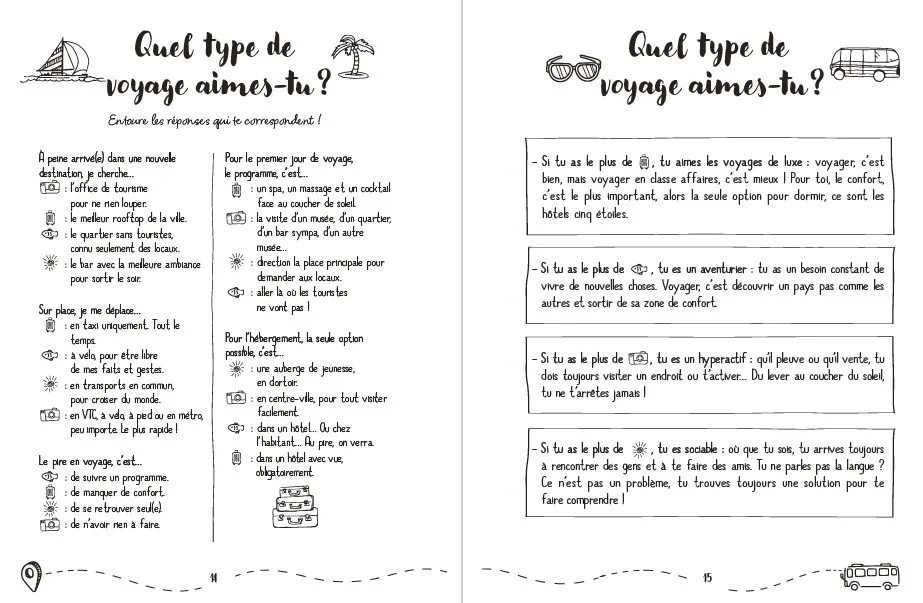 Quel type de
voyage aimes-tu ?
Entoure les réponses qui te correspondent !
À peine arrivé(e) dans une nouvelle
destination, je cherche...
: l'office de tourisme
pour ne rien louper.
: le meilleur rooftop de la ville.
: le quartier sans touristes,
connu seulement des locaux.
: le bar avec la meilleure ambiance
pour sortir le soir.
Sur place, je me déplace...
: en taxi uniquement. Tout le
temps.
: à vélo, pour être libre
de mes faits et gestes.
: en transports en commun,
pour croiser du monde.
: en VTC, à vélo, à pied ou en métro,
peu importe. Le plus rapide !
Le pire en voyage, c'est...
: de suivre un programme.
: de manquer de confort.
: de se retrouver seul(e).
: de n'avoir rien à faire.
Pour le premier jour de voyage,
le programme, c'est...
: un spa, un massage et un cocktail
face au coucher de soleil.
: la visite d'un musée, d'un quartier,
d'un bar sympa, d'un autre
musée...
: direction la place principale pour
demander aux locaux.
: aller là où les touristes
ne vont pas !
Pour l'hébergement, la seule option
possible, c'est...
: une auberge de jeunesse,
en dortoir.
: en centre-ville, pour tout visiter
facilement.
: dans un hôtel... Ou chez
l'habitant... Au pire, on verra.
: dans un hôtel avec vue,
obligatoirement.
14
Quel type de
voyage aimes-tu ?
- Si tu as le plus de , tu aimes les voyages de luxe : voyager, c'est
bien, mais voyager en classe affaires, c'est mieux ! Pour toi, le confort,
c'est le plus important, alors la seule option pour dormir, ce sont les
hôtels cinq étoiles.
- Si tu as le plus de , tu es un aventurier : tu as un besoin constant de
vivre de nouvelles choses. Voyager, c'est découvrir un pays pas comme les
autres et sortir de sa zone de confort.
- Si tu as le plus de , tu es un hyperactif : qu'il pleuve ou qu'il vente, tu
dois toujours visiter un endroit ou t'activer... Du lever au coucher du soleil,
tu ne t'arrêtes jamais !
- Si tu as le plus de , tu es sociable : où que tu sois, tu arrives toujours
à rencontrer des gens et à te faire des amis. Tu ne parles pas la langue ?
Ce n'est pas un problème, tu trouves toujours une solution pour te
faire comprendre !
15